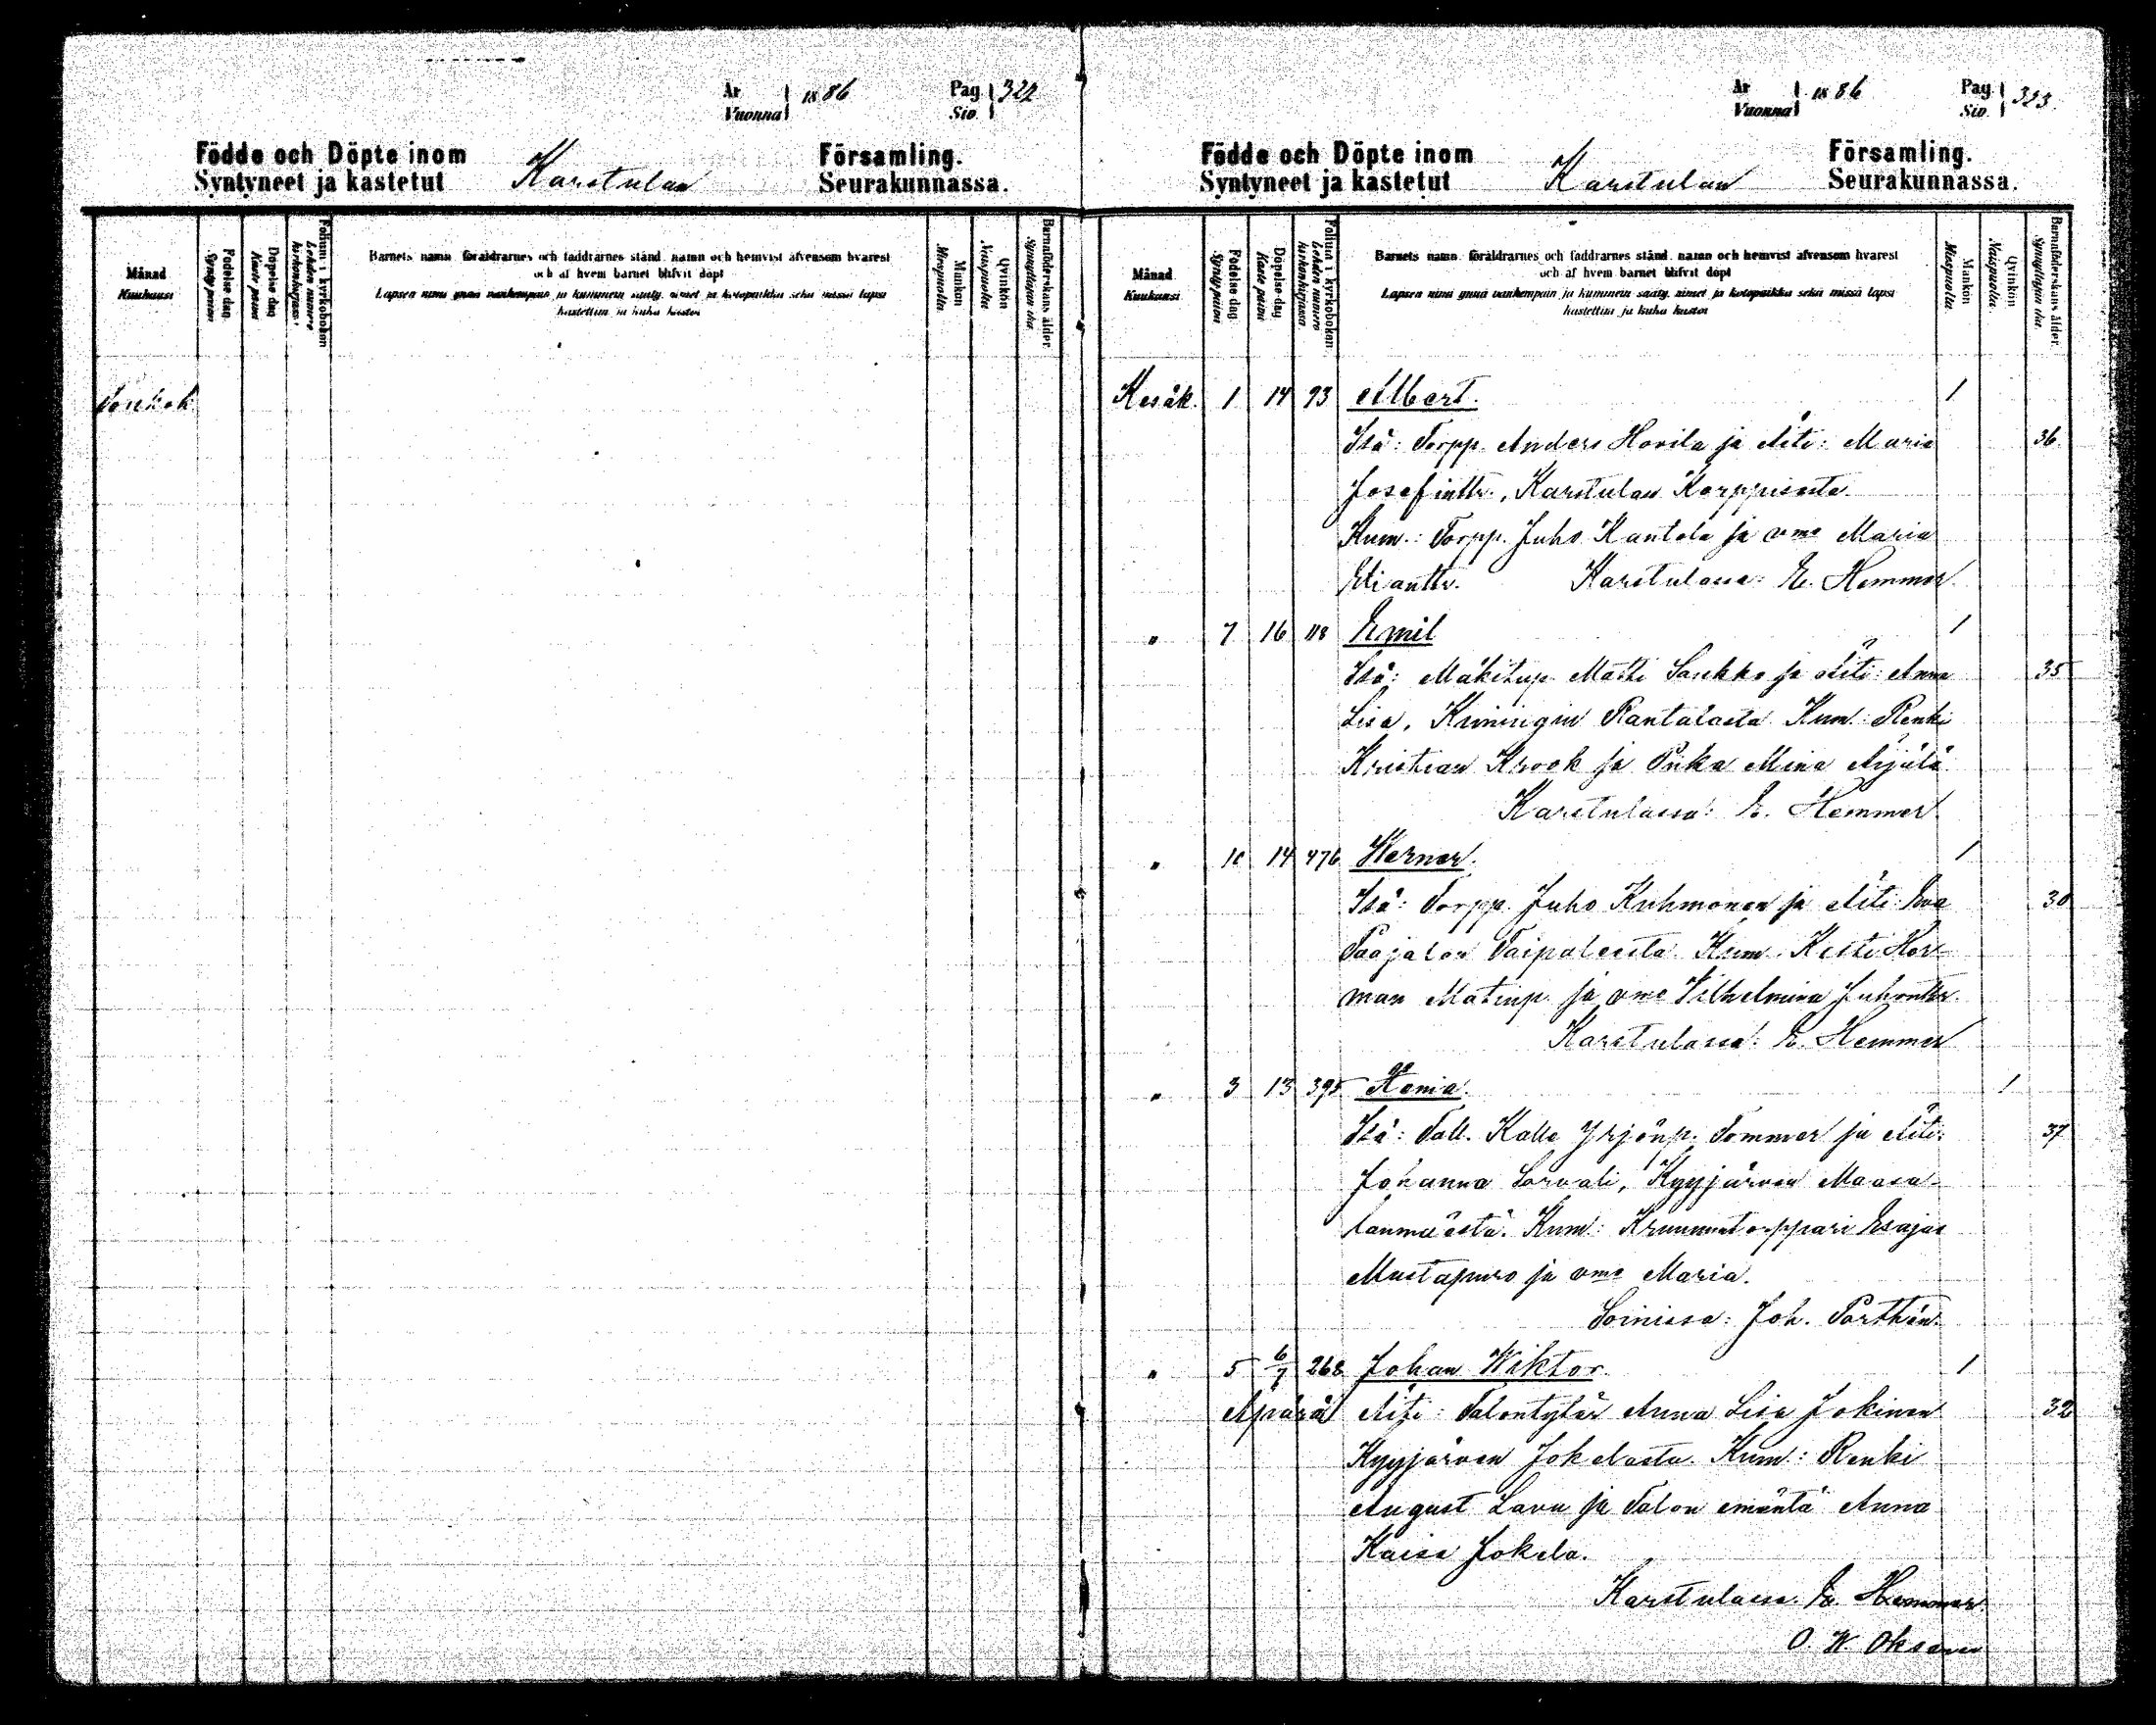 År Vuonna 1886 Pag. Siv. 322
Födde och Döpte inom Syntyneet ja kastetut Karstulan Församling. Seurakunnassa.
Månad Kuukausi
Födelse dag. Syntymäpäivä
Döpelse dag Kaste päivä
Folium i kyrkoboken Lehden numero kirkonkirjassa
Barnets namn, föräldrarnes och faddrarnes stånd, namn och hemvist äfvensom hvarest
och af hvem barnet blifvit döpt
Lapsen nimi ynnä vanhempain ja kummein sääty, nimet ja kotopaikka sekä missä lapsi
kastettiin ja kuka kastoi
Mankön Miespuolia
Qvinkön Naispuolia
Barnföderskans ålder. Synnyttäjän ikä
Toukok
År Vuonna 1886 Pag. Siv. 323
Födde och Döpte inom Syntyneet ja kastetut Karstulan Församling. Seurakunnassa.
Månad Kuukausi
Födelse dag. Syntymäpäivä
Döpelse dag Kaste päivä
Folium i kyrkoboken Lehden numero kirkonkirjassa
Barnets namn, föräldrarnes och faddrarnes stånd, namn och hemvist äfvensom hvarest
och af hvem barnet blifvit döpt
Lapsen nimi ynnä vanhempain ja kummein sääty, nimet ja kotopaikka sekä missä lapsi
kastettiin ja kuka kastoi
Mankön Miespuolia
Qvinkön Naispuolia
Barnföderskans ålder. Synnyttäjän ikä
Kesäk. 1 14 93 Albert. 1
Isä: Torpp. Anders Hovila ja Äiti: Maria 36
Josefintr., Karstulan
Kum.: Torpp. Juho Kantola ja vmo Maria
Karstulassa: E. Hemmer
" 7 16 118 Emil 1
Isä: Mäkitup. Matti Saukko ja Äiti: Anna 35
Lisa, Kiminigin Rantalasta. Kum.: Renki
Kristian Krook ja Piika Mina Äijälä.
Karstulassa: E. Hemmer
" 10 14 476 Werner. 1
Isä: Torpp. Juho Kuhmonen ja Äiti: Eva 30
Paajalan Taipaleesta. Kum. Kesti Her-
man Matinp. ja vmo Vilhelmina Juhontr.
Karstulassa: E. Hemmer
" 3 13 395 Aenia. 1
Isä: Tall. Kalle Yrjönp. Tommer ja Äiti: 37
Johanna Sorvali, Kyyjärven Maasa-
lanmäestä. Kum.: Kruununtorppari Esajas
Mustapuro ja vmo Maria.
Soinissa: Joh. Porthén.
" 5 6/7 268 Johan Wiktor. 1
Äpärä Äiti: Talontytär Anna Lisa Jokinen 32
Kyyjärven Jokelasta. Kum.: Renki
August Lavu ja Talon emäntä Anna
Kaisa Jokela.
Karstulassa. E. Hemmer.
O. W. Oksanen